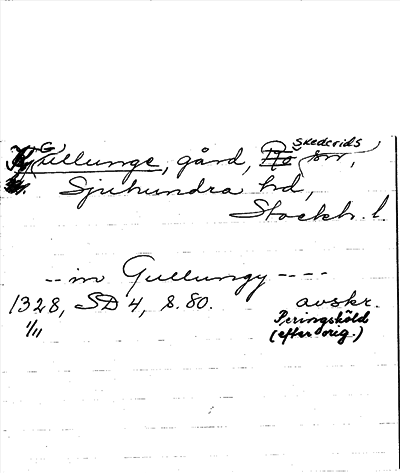 Gullunge, gård, Skederids sn,
Sjuhundra hd,
Stockh. l.
-- in Gullungy ----
1328, SD 4, s. 80. avskr.
1/11 Peringsköld
(efter orig.)